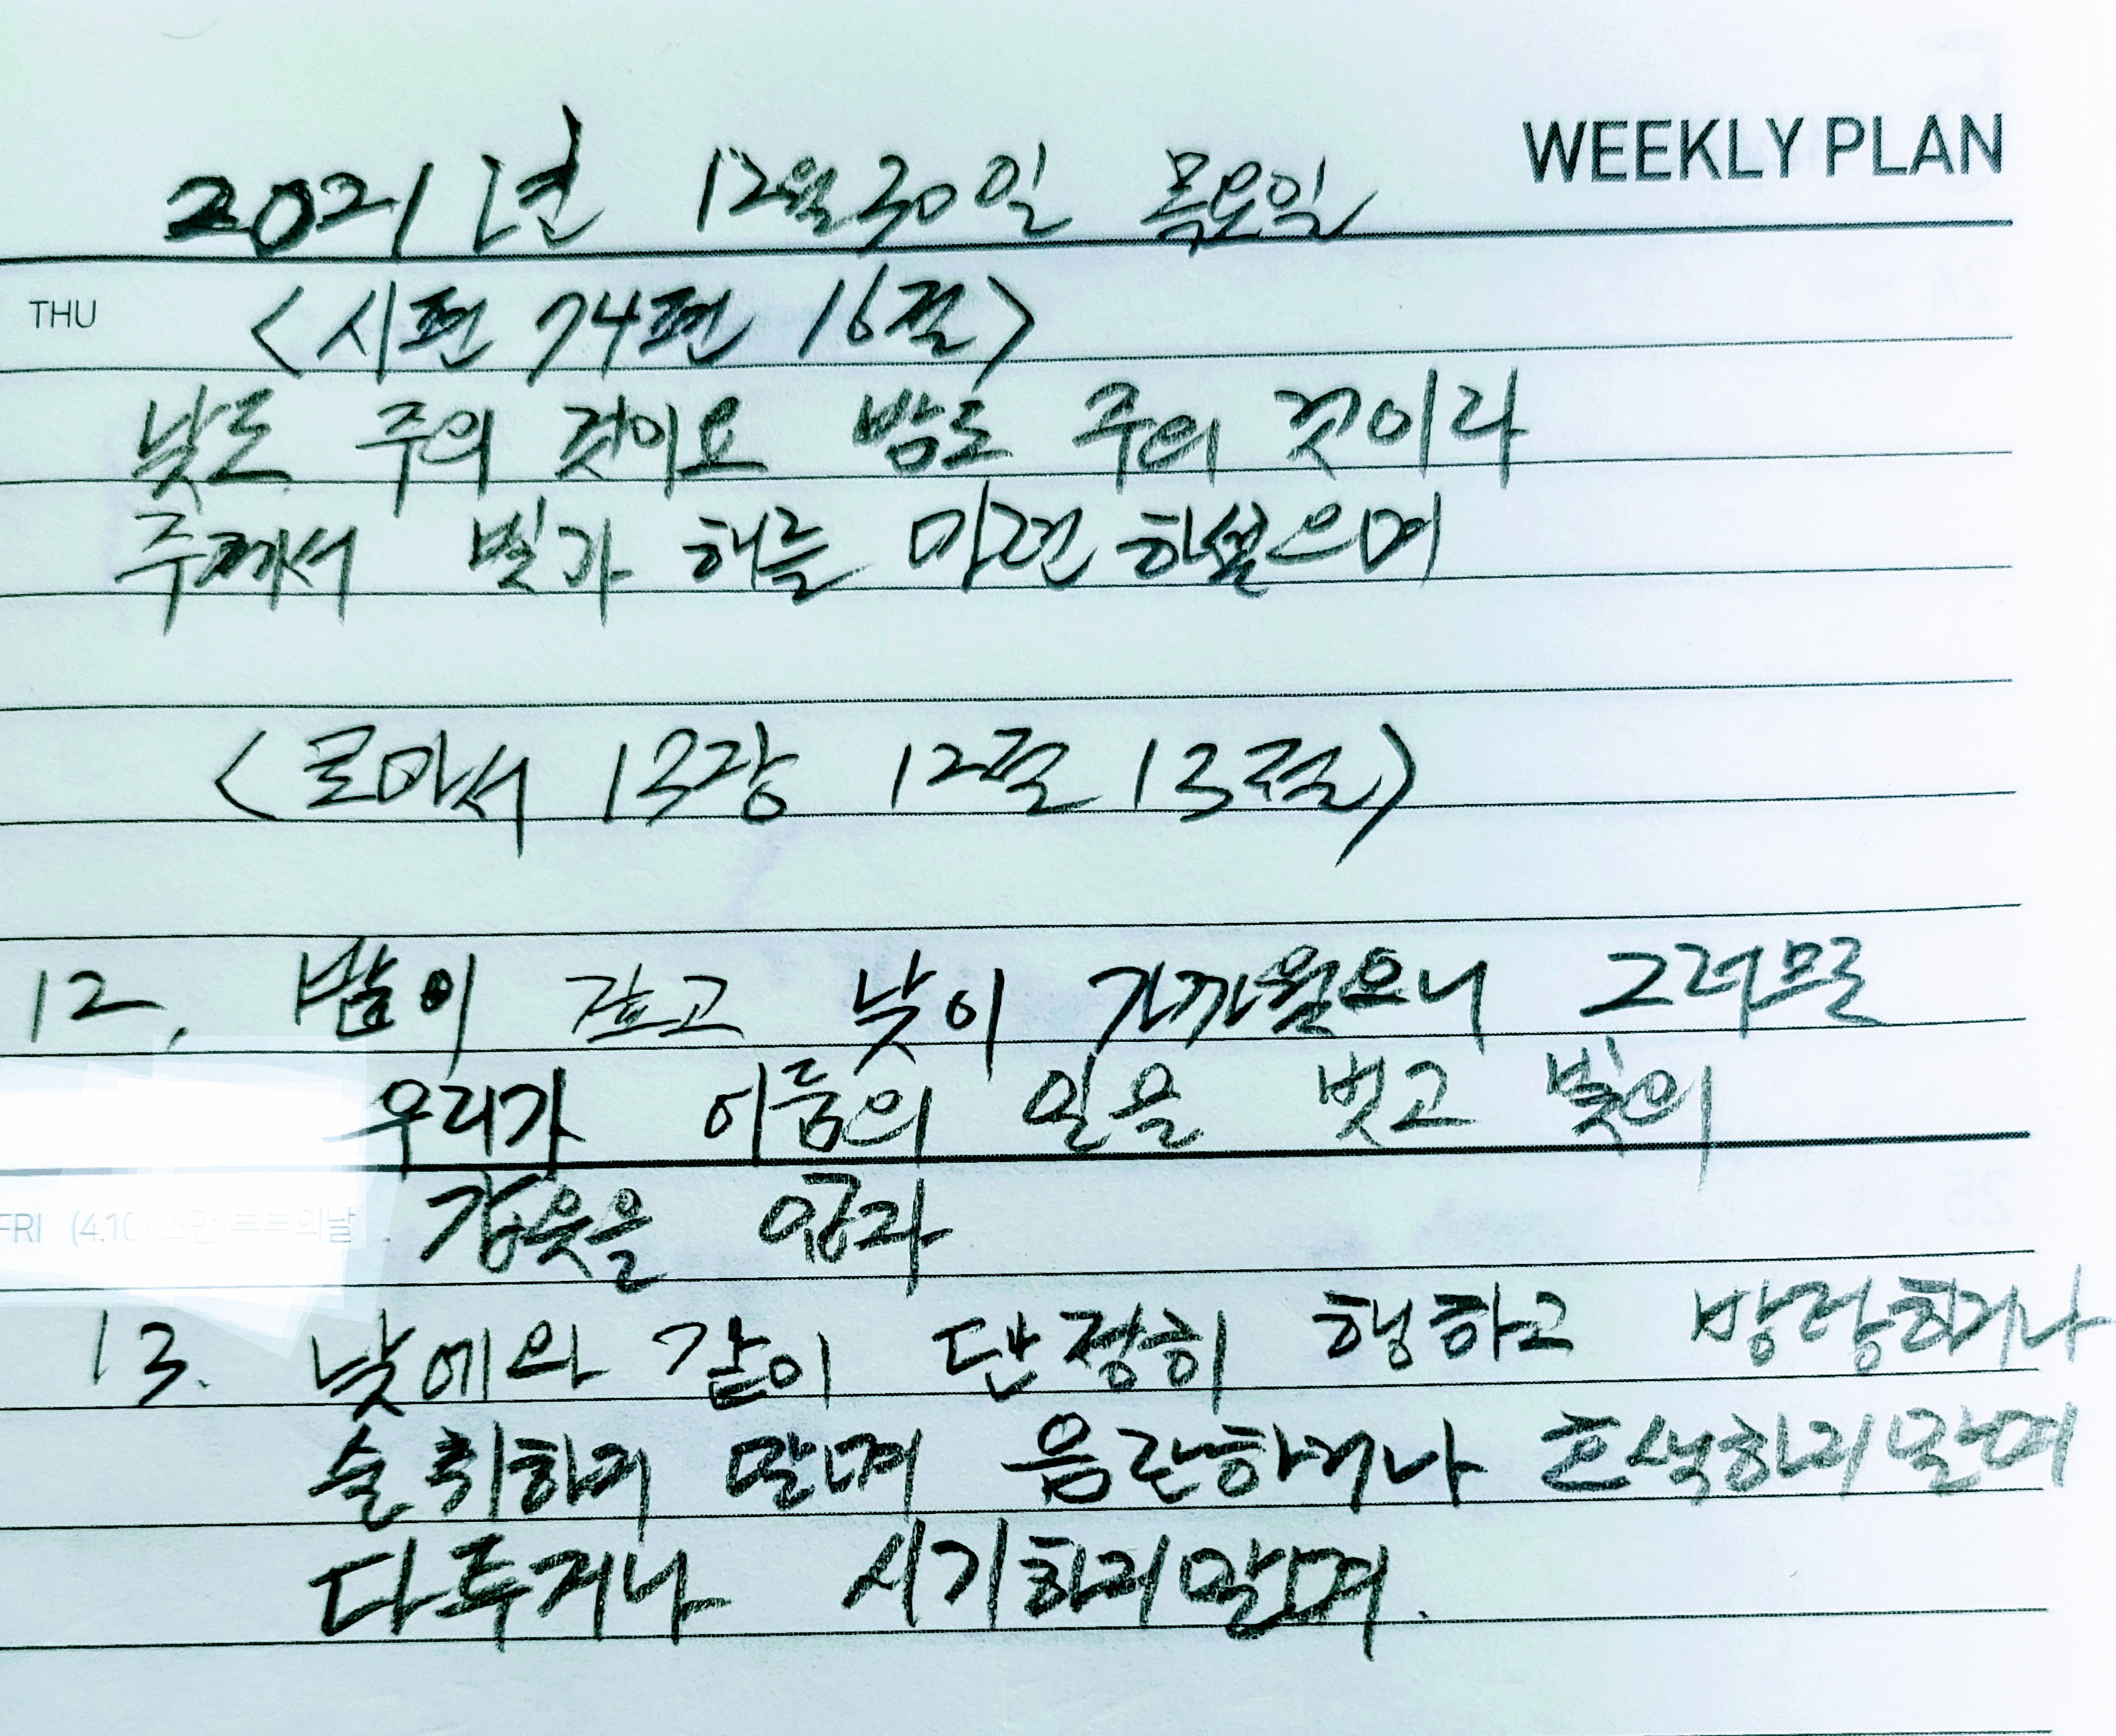 WEEKLY PLAN
2021년 12월 30일 목요일
THU
<시편 74편 16절>
낮도 주의 것이요 밤도 주의 것이라
주께서 빛과 해를 마련하셨으며
<로마서 13장 12절 13절>
12. 밤이 깊고 낮이 가까웠으니 그러므로
우리가 어둠의 일을 벗고 빛의
FRI (4.10) 소만·부부의날
갑옷을 입자
13. 낮에와 같이 단정히 행하고 방탕하거나
술 취하지 말며 음란하거나 호색하지 말며
다투거나 시기하지 말며.